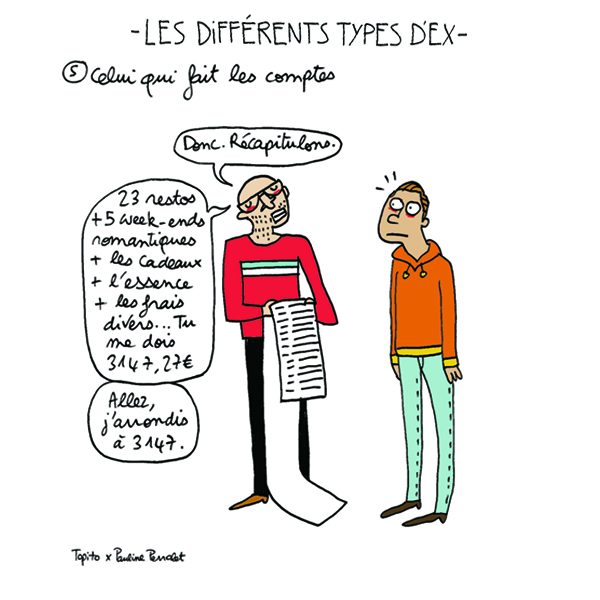 -LES DiFFÉRENTS TYPES D'EX-
⑤ Celui qui fait les comptes
Donc. Récapitulons.
23 restos
+ 5 week-ends
romantiques
+ les cadeaux
+ l'essence
+ les frais
divers... Tu
me dois
3147,27€
Allez,
j'arrondis
à 3147.
Topito x Pauline Perrolet